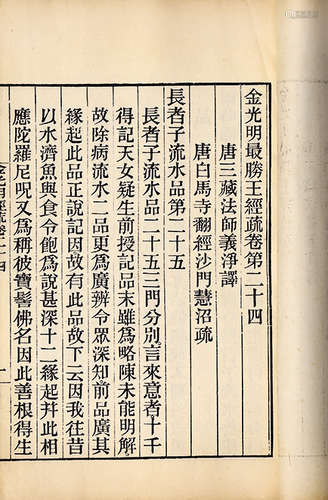 金光明最勝王經疏卷第二十四
唐三藏法師義淨譯
唐白馬寺翻經沙門慧沼疏
長者子流水品第二十五
長者子流水品二十五三門分別言來意者十千
得記天女疑生前授記品末雖為略陳未能明解
故除病流水二品更為廣辨令眾深知前品廣其
緣起此品正說記因故有此品故下云因我往昔
以水濟魚與食令飽為說甚深十二緣起幷此相
應陀羅尼呪又為稱彼寶髻佛名因此善根得生